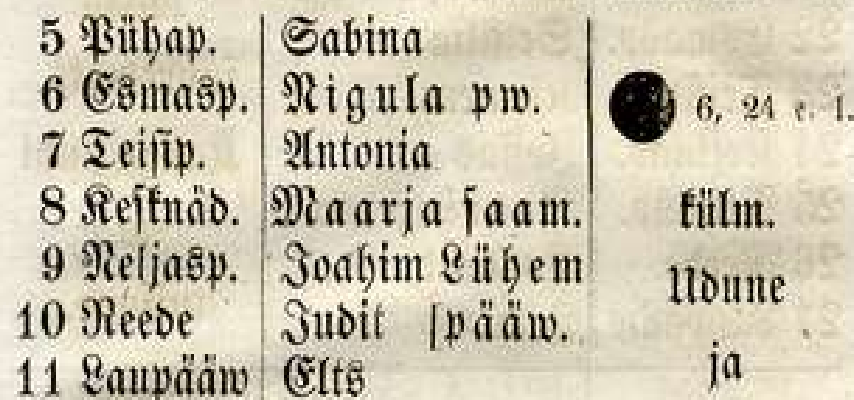 5 Pühap. Sabina
6 Esmasp. Nigula pw. 6, 24 e. l.
7 Teisip. Antonia
8 Kesknäd. Maarja saam. külm.
9 Neljasp. Joahim Lühem
Udune
10 Reede Judit [pääw.
11 Laupääw Elts ja